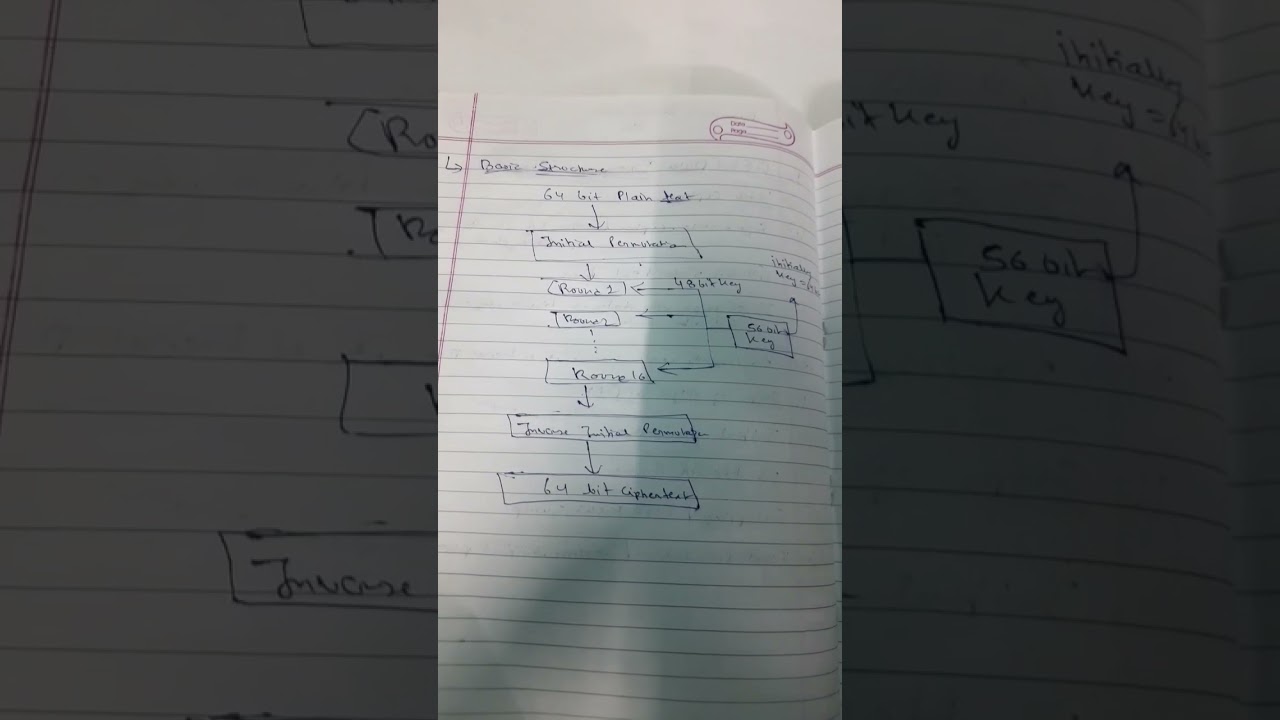 Date
Page
↳ Basic Structure
64 bit Plain text
Initial Permutation
Round 1
48 bit key
initially
key = 64
Round 2
56 bit
key
Round 16
Inverse Initial Permutation
64 bit ciphertext